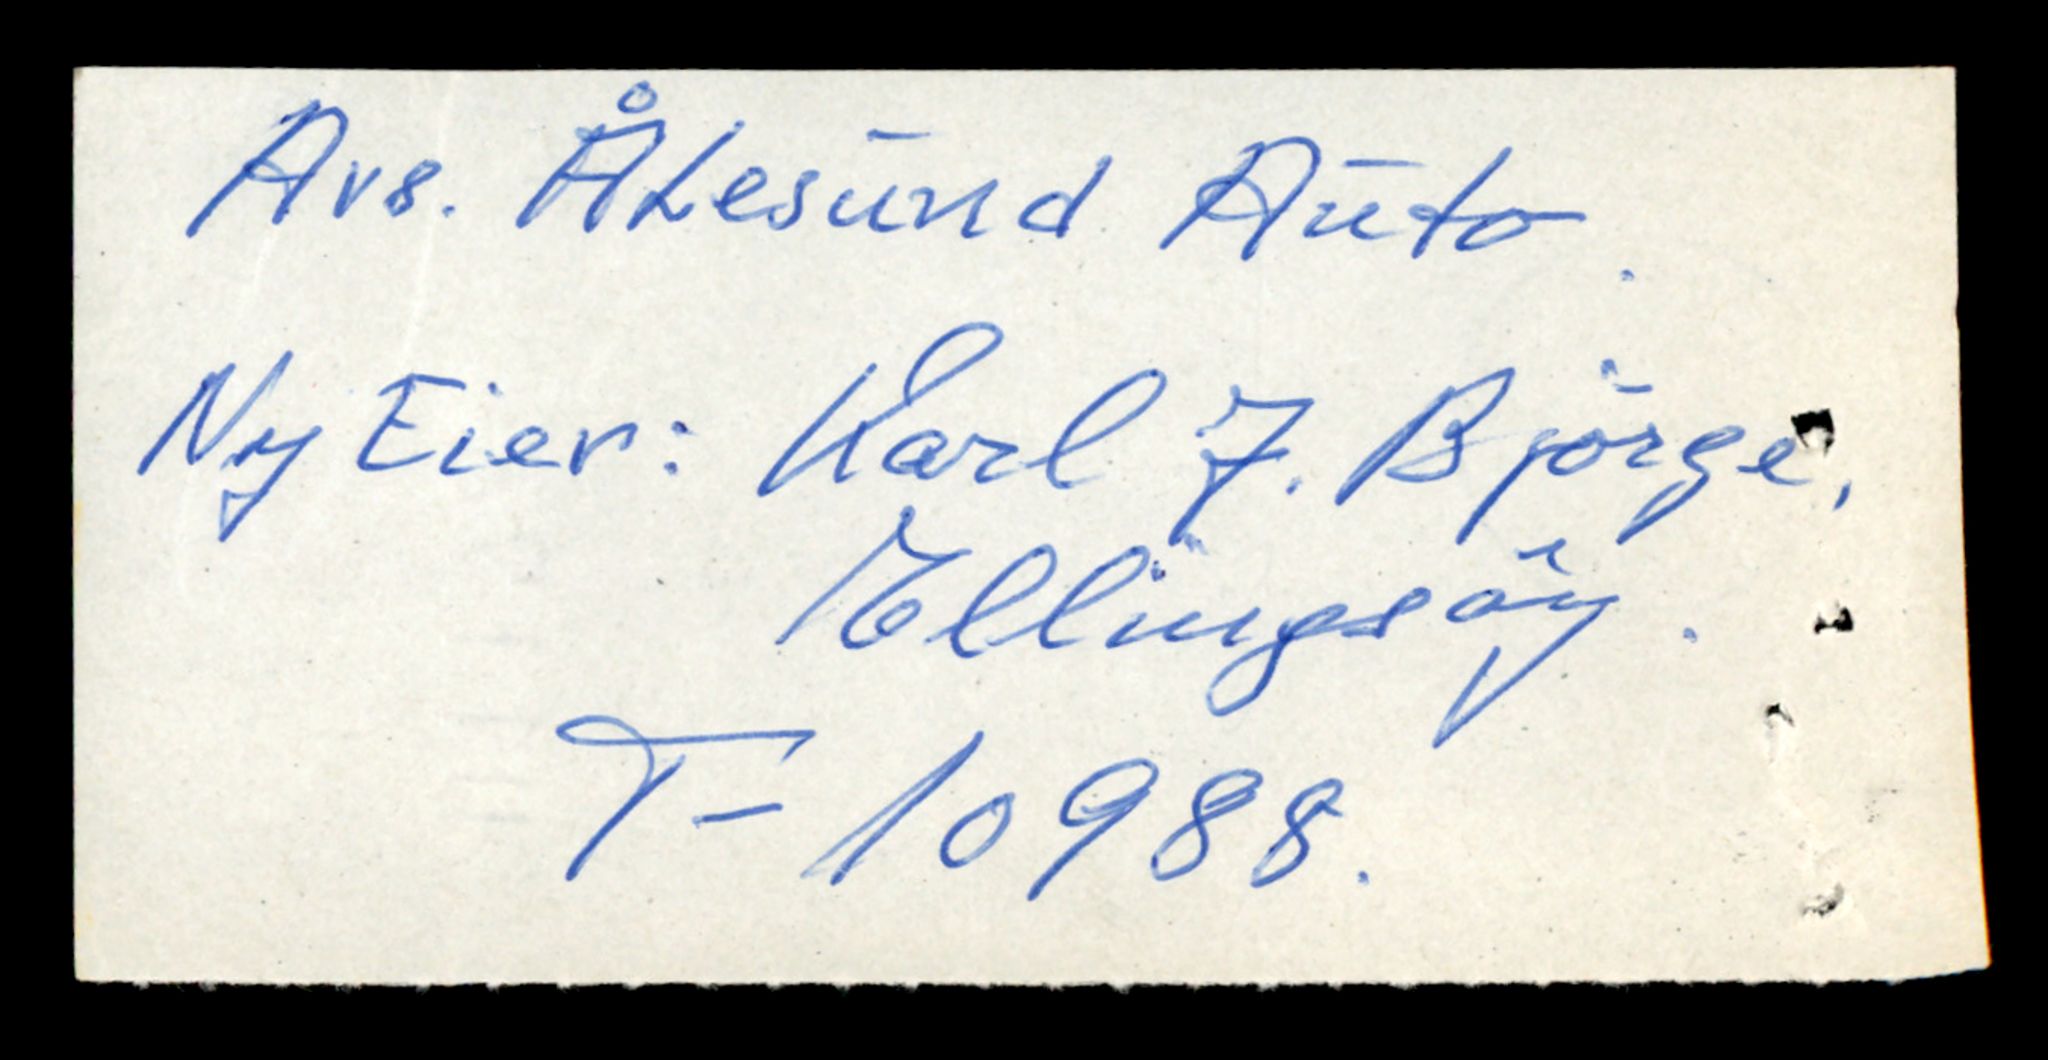 Avs. Ålesund Auto.
Ny Eier: Karl J. Bjørge,
Ellingsøy.
T- 10988.